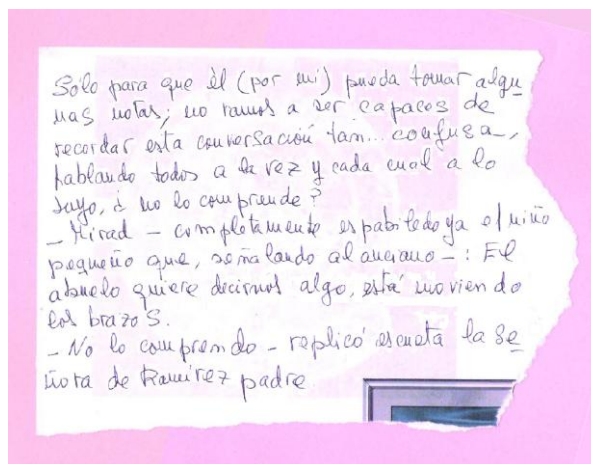 Sólo para que él (por mi) pueda tomar algu
nas notas; no vamos a ser capaces de
recordar esta conversación tan... confusa_,
hablando todos a la vez y cada cual a lo
suyo, ¿ no lo comprende?
_ Mirad _ completamente espabilado ya el niño
pequeño que, señalando al anciano _: El
abuelo quiere decirnos algo, está moviendo
los brazos.
_ No lo comprendo _ replicó escueta la se
ñora de Ramírez padre.